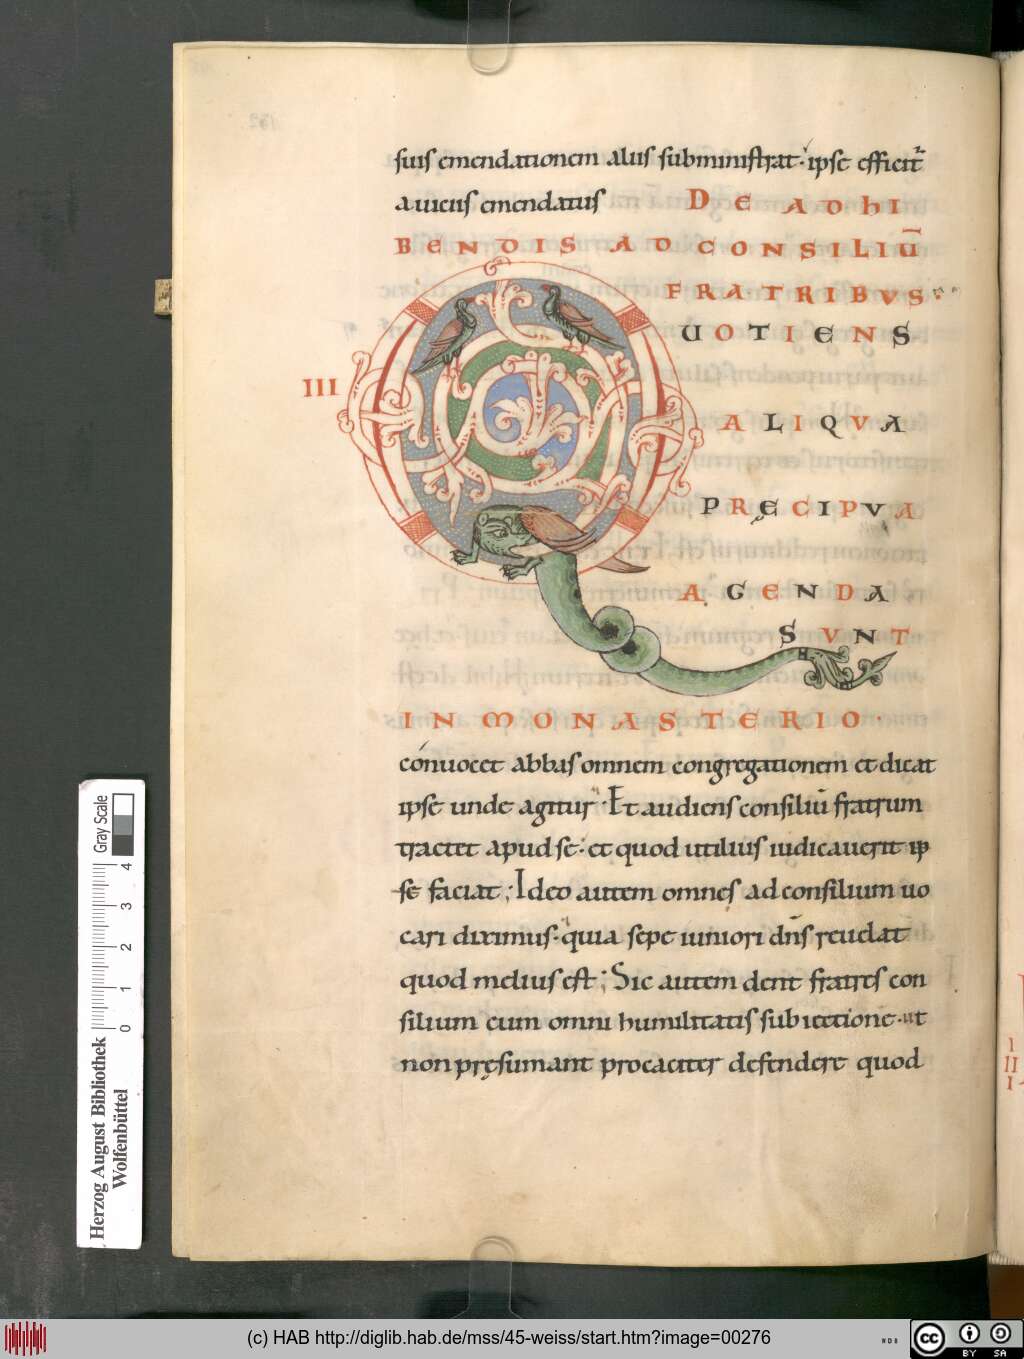 suis emendationem aliis subministrat. ipse efficit̄
a uiciis emendatus DE ADHI
BENDIS AD CONSILIŪ
FRATRIBVS
QUOTIENS
III
ALIQVA
PRĘCIPVA
AGENDA
SVNT
IN MONASTERIO.
conuocet abbas omnem congregationem et dicat
ipse unde agitur. Et audiens consiliū fratrum
tractet apud se. et quod utilius iudicauerit ip
se faciat; Ideo autem omnes ad consilium uo
cari diximus. quia sepe iuniori dn̄s reuelat
quod melius est; Sic autem dent fratres con
silium cum omni humilitatis subiectione. ut
non pręsumant procaciter defendere quod
Gray Scale
0 1 2 3 4
Herzog August Bibliothek
Wolfenbüttel
I
II
I
(c) HAB http://diglib.hab.de/mss/45-weiss/start.htm?image=00276
cc BY SA